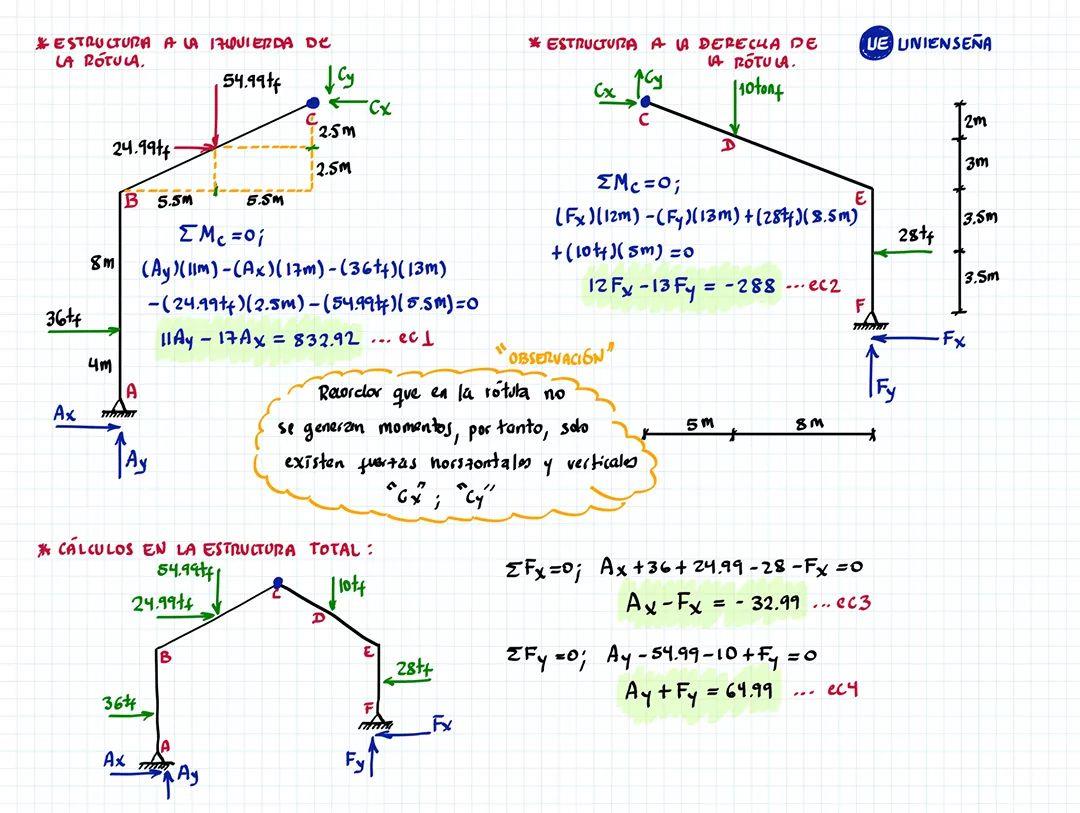 * ESTRUCTURA A LA IZQUIERDA DE
LA RÓTULA.
54.99tf
Cy
Cx
C
2.5m
24.99tf
2.5m
B
5.5m
5.5m
ΣMc=0;
8m
(Ay)(11m)-(Ax)(17m)-(36tf)(13m)
-(24.99tf)(2.5m)-(54.99tf)(5.5m)=0
36tf
11Ay - 17Ax = 832.92 ... ec1
4m
A
Ax
Ay
* ESTRUCTURA A LA DERECHA DE
LA RÓTULA.
UE UNIENSEÑA
Cy
10tonf
Cx
C
2m
D
3m
ΣMc=0;
E
(Fx)(12m)-(Fy)(13m)+(28tf)(8.5m)
3.5m
28tf
+(10tf)(5m)=0
12Fx-13Fy = -288 ...ec2
3.5m
F
Fx
Fy
5m
8m
"OBSERVACIÓN"
Recordar que en la rótula no
se generan momentos, por tanto, solo
existen fuerzas horizontales y verticales
"Cx"; "Cy"
* CÁLCULOS EN LA ESTRUCTURA TOTAL:
54.99tf
10tf
24.99tf
C
D
B
E
28tf
36tf
F
A
Fx
Ax
Ay
Fy
ΣFx=0; Ax+36+24.99-28-Fx=0
Ax-Fx = -32.99 ...ec3
ΣFy=0; Ay-54.99-10+Fy=0
Ay+Fy = 64.99 ... ec4